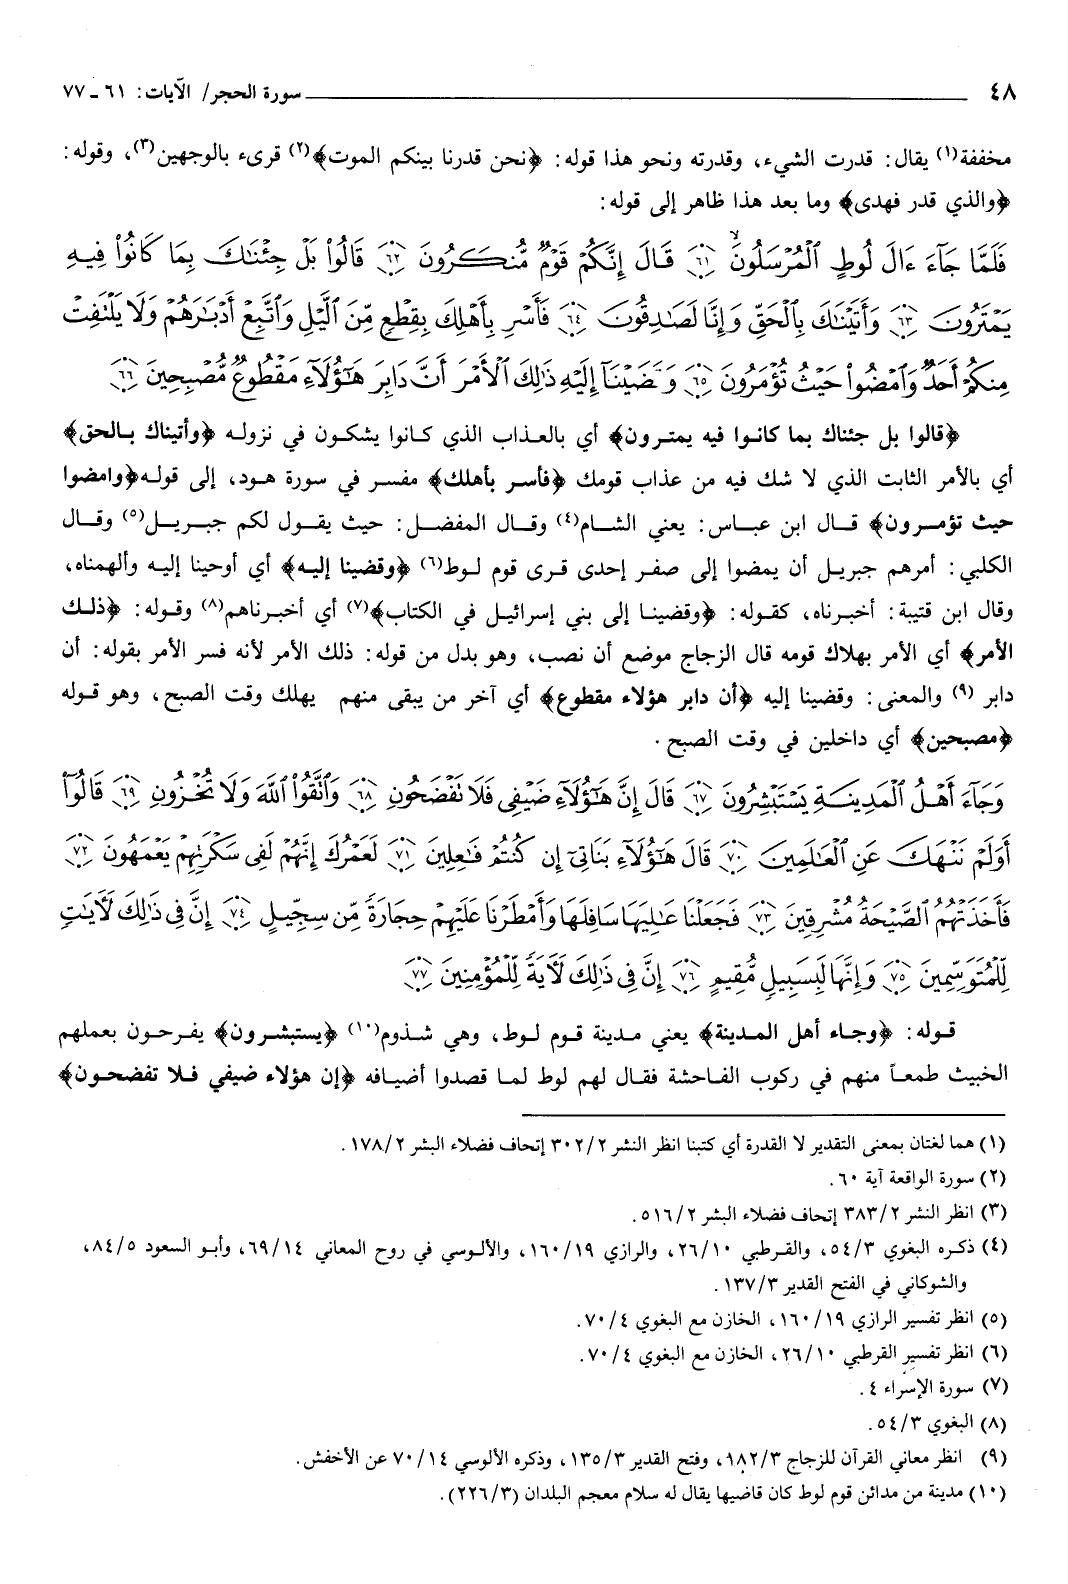 ٤٨ سورة الحجر/ الآيات: ٦١ ـ ٧٧
مخففة(١) يقال: قدرت الشيء، وقدرته ونحو هذا قوله: ﴿نحن قدرنا بينكم الموت﴾(٢) قرىء بالوجهين(٣)، وقوله:
﴿والذي قدر فهدى﴾ وما بعد هذا ظاهر إلى قوله:
فَلَمَّا جَآءَ ءَالَ لُوطٍ ٱلْمُرْسَلُونَ ﴿٦١﴾ قَالَ إِنَّكُمْ قَوْمٌ مُّنكَرُونَ ﴿٦٢﴾ قَالُوا۟ بَلْ جِئْنَـٰكَ بِمَا كَانُوا۟ فِيهِ
يَمْتَرُونَ ﴿٦٣﴾ وَأَتَيْنَـٰكَ بِٱلْحَقِّ وَإِنَّا لَصَـٰدِقُونَ ﴿٦٤﴾ فَأَسْرِ بِأَهْلِكَ بِقِطْعٍ مِّنَ ٱلَّيْلِ وَٱتَّبِعْ أَدْبَـٰرَهُمْ وَلَا يَلْتَفِتْ
مِنكُمْ أَحَدٌ وَٱمْضُوا۟ حَيْثُ تُؤْمَرُونَ ﴿٦٥﴾ وَقَضَيْنَآ إِلَيْهِ ذَٰلِكَ ٱلْأَمْرَ أَنَّ دَابِرَ هَـٰٓؤُلَآءِ مَقْطُوعٌ مُّصْبِحِينَ ﴿٦٦﴾
﴿قالوا بل جئناك بما كانوا فيه يمترون﴾ أي بالعذاب الذي كانوا يشكون في نزوله ﴿وأتيناك بالحق﴾
أي بالأمر الثابت الذي لا شك فيه من عذاب قومك ﴿فأسر بأهلك﴾ مفسر في سورة هود، إلى قوله ﴿وامضوا
حيث تؤمرون﴾ قال ابن عباس: يعني الشام(٤) وقال المفضل: حيث يقول لكم جبريل(٥) وقال
الكلبي: أمرهم جبريل أن يمضوا إلى صفر إحدى قرى قوم لوط(٦) ﴿وقضينا إليه﴾ أي أوحينا إليه وألهمناه،
وقال ابن قتيبة: أخبرناه، كقوله: ﴿وقضينا إلى بني إسرائيل في الكتاب﴾(٧) أي أخبرناهم(٨) وقوله: ﴿ذلك
الأمر﴾ أي الأمر بهلاك قومه قال الزجاج موضع أن نصب، وهو بدل من قوله: ذلك الأمر لأنه فسر الأمر بقوله: أن
دابر (٩) والمعنى: وقضينا إليه ﴿أن دابر هؤلاء مقطوع﴾ أي آخر من يبقى منهم يهلك وقت الصبح، وهو قوله
﴿مصبحين﴾ أي داخلين في وقت الصبح.
وَجَآءَ أَهْلُ ٱلْمَدِينَةِ يَسْتَبْشِرُونَ ﴿٦٧﴾ قَالَ إِنَّ هَـٰٓؤُلَآءِ ضَيْفِى فَلَا تَفْضَحُونِ ﴿٦٨﴾ وَٱتَّقُوا۟ ٱللَّهَ وَلَا تُخْزُونِ ﴿٦٩﴾ قَالُوٓا۟
أَوَلَمْ نَنْهَكَ عَنِ ٱلْعَـٰلَمِينَ ﴿٧٠﴾ قَالَ هَـٰٓؤُلَآءِ بَنَاتِىٓ إِن كُنتُمْ فَـٰعِلِينَ ﴿٧١﴾ لَعَمْرُكَ إِنَّهُمْ لَفِى سَكْرَتِهِمْ يَعْمَهُونَ ﴿٧٢﴾
فَأَخَذَتْهُمُ ٱلصَّيْحَةُ مُشْرِقِينَ ﴿٧٣﴾ فَجَعَلْنَا عَـٰلِيَهَا سَافِلَهَا وَأَمْطَرْنَا عَلَيْهِمْ حِجَارَةً مِّن سِجِّيلٍ ﴿٧٤﴾ إِنَّ فِى ذَٰلِكَ لَـَٔايَـٰتٍ
لِّلْمُتَوَسِّمِينَ ﴿٧٥﴾ وَإِنَّهَا لَبِسَبِيلٍ مُّقِيمٍ ﴿٧٦﴾ إِنَّ فِى ذَٰلِكَ لَـَٔايَةً لِّلْمُؤْمِنِينَ ﴿٧٧﴾
قوله: ﴿وجاء أهل المدينة﴾ يعني مدينة قوم لوط، وهي شذوم(١٠) ﴿يستبشرون﴾ يفرحون بعملهم
الخبيث طمعاً منهم في ركوب الفاحشة فقال لهم لوط لما قصدوا أضيافه ﴿إن هؤلاء ضيفي فلا تفضحون﴾
(١) هما لغتان بمعنى التقدير لا القدرة أي كتبنا انظر النشر ٣٠٢/٢ إتحاف فضلاء البشر ١٧٨/٢.
(٢) سورة الواقعة آية ٦٠.
(٣) انظر النشر ٣٨٣/٢ إتحاف فضلاء البشر ٥١٦/٢.
(٤) ذكره البغوي ٥٤/٣، والقرطبي ٢٦/١٠، والرازي ١٦٠/١٩، والألوسي في روح المعاني ٦٩/١٤، وأبو السعود ٨٤/٥،
والشوكاني في الفتح القدير ١٣٧/٣.
(٥) انظر تفسير الرازي ١٦٠/١٩، الخازن مع البغوي ٧٠/٤.
(٦) انظر تفسير القرطبي ٢٦/١٠، الخازن مع البغوي ٧٠/٤.
(٧) سورة الإسراء ٤.
(٨) البغوي ٥٤/٣.
(٩) انظر معاني القرآن للزجاج ١٨٢/٣، وفتح القدير ١٣٥/٣، وذكره الألوسي ٧٠/١٤ عن الأخفش.
(١٠) مدينة من مدائن قوم لوط كان قاضيها يقال له سلام معجم البلدان (٢٢٦/٣).